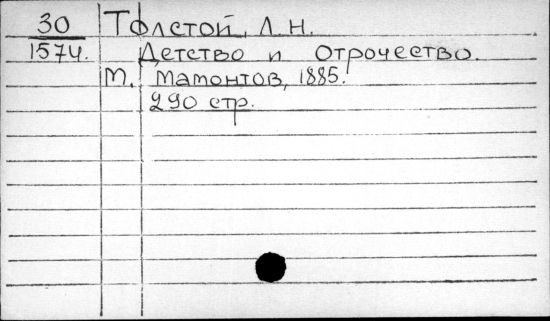 30 Толстой, Л. Н.
1574. Детство и Отрочество.
М. Мамонтов, 1885.
290 стр.